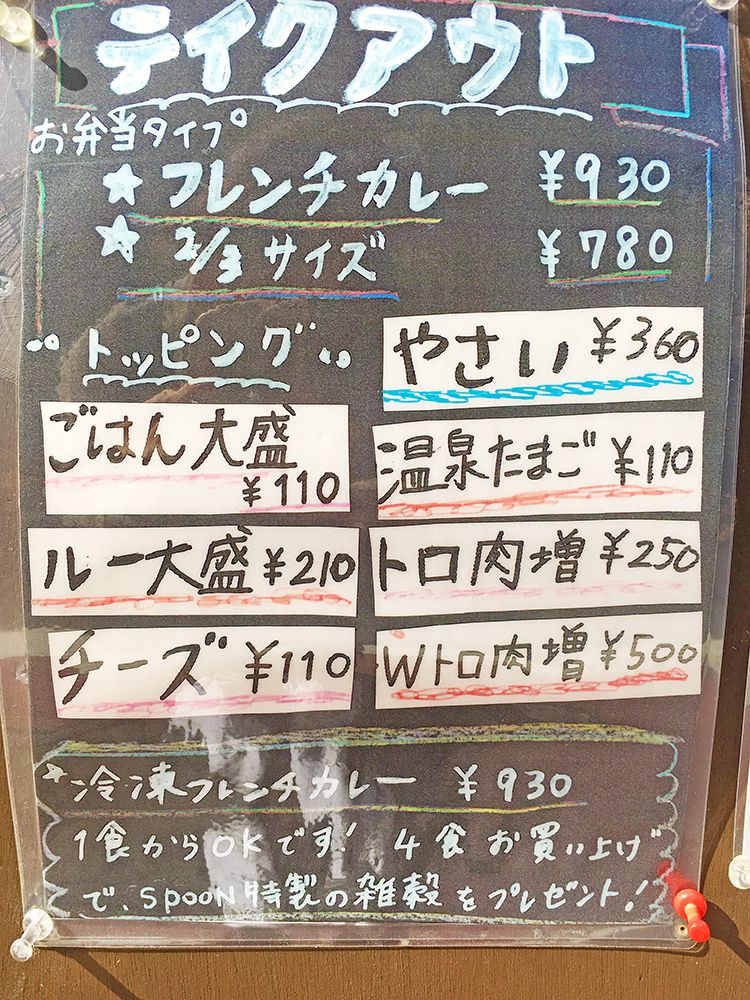 テイクアウト
お弁当タイプ
★ フレンチカレー ¥930
★ 2/3 サイズ ¥780
トッピング
やさい ¥360
ごはん大盛 ¥110
温泉たまご ¥110
ルー大盛 ¥210
トロ肉増 ¥250
チーズ ¥110
Wトロ肉増 ¥500
★冷凍フレンチカレー ¥930
1食からOKです! 4食お買い上げ
で、SPOON特製の雑穀をプレゼント!